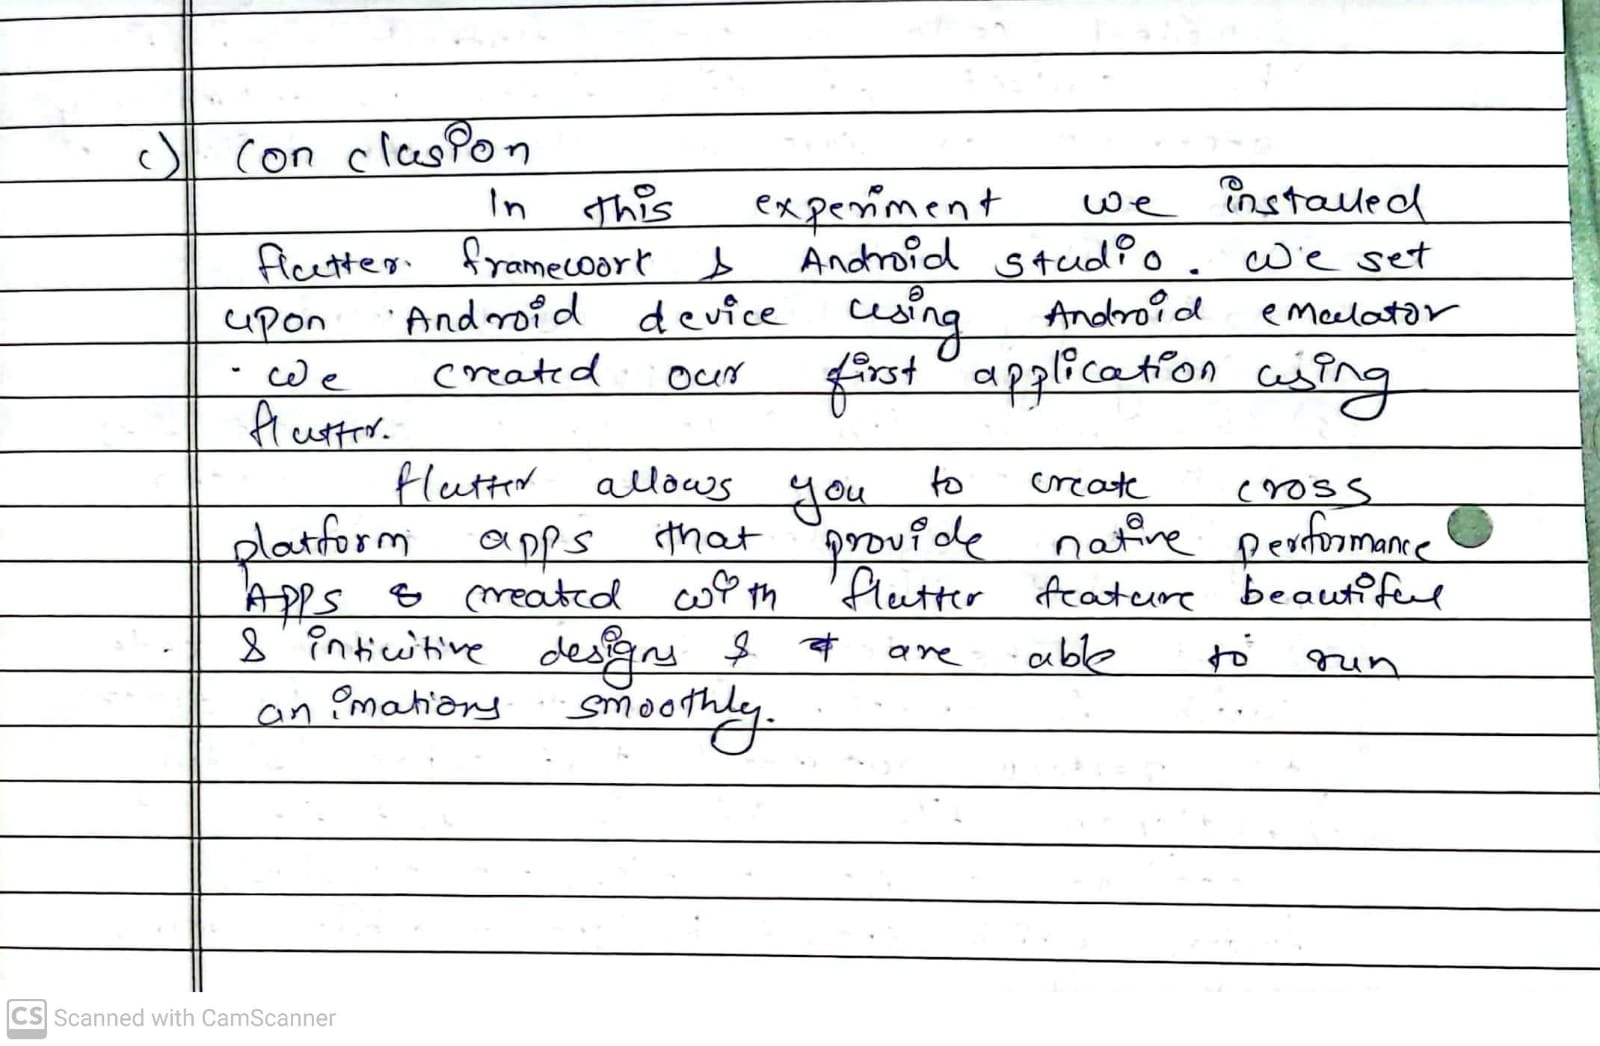 c) Conclusion
In this experiment we installed
flutter framework & Android studio. We set
upon Android device using Android emulator
. We created our first application using
flutter.
flutter allows you to create cross
platform apps that provide native performance
Apps & created with flutter feature beautiful
& intiuitive designs & are able to run
animations smoothly.
CS Scanned with CamScanner